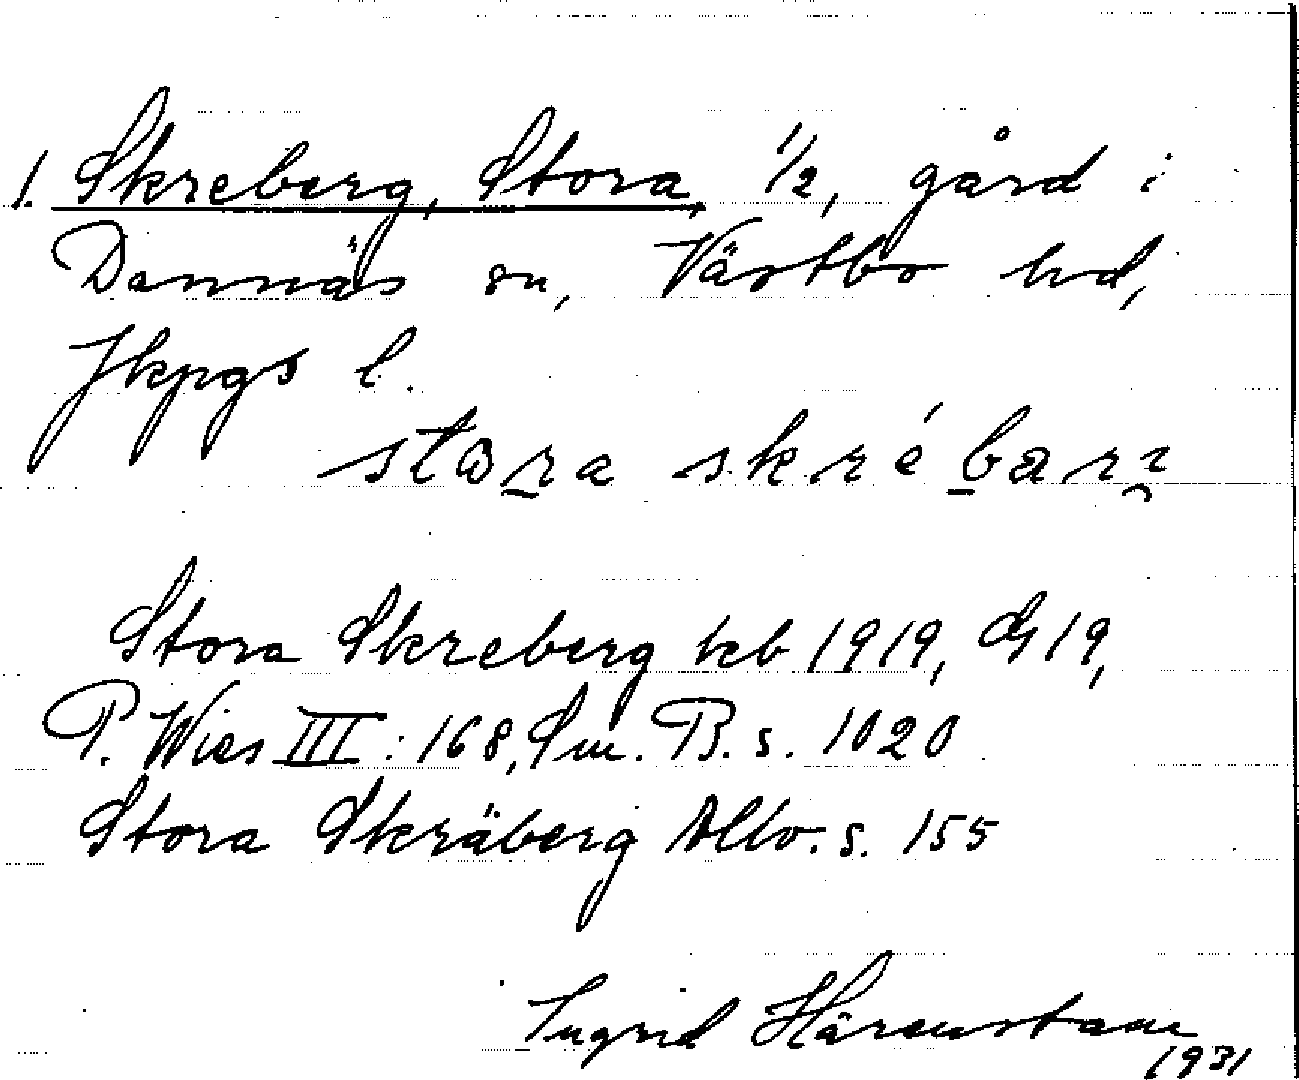 1. Skreberg, Stora, 1/2, gård i
Dannäs sn, Västbo hd,
Jkpgs l.
stora skré bærɪ
Stora Skreberg kb 1919, G 19,
P. Wies III: 168, Sm. B. s. 1020
Stora Skräberg Allbo. s. 155
Ingrid Härenstam
1931